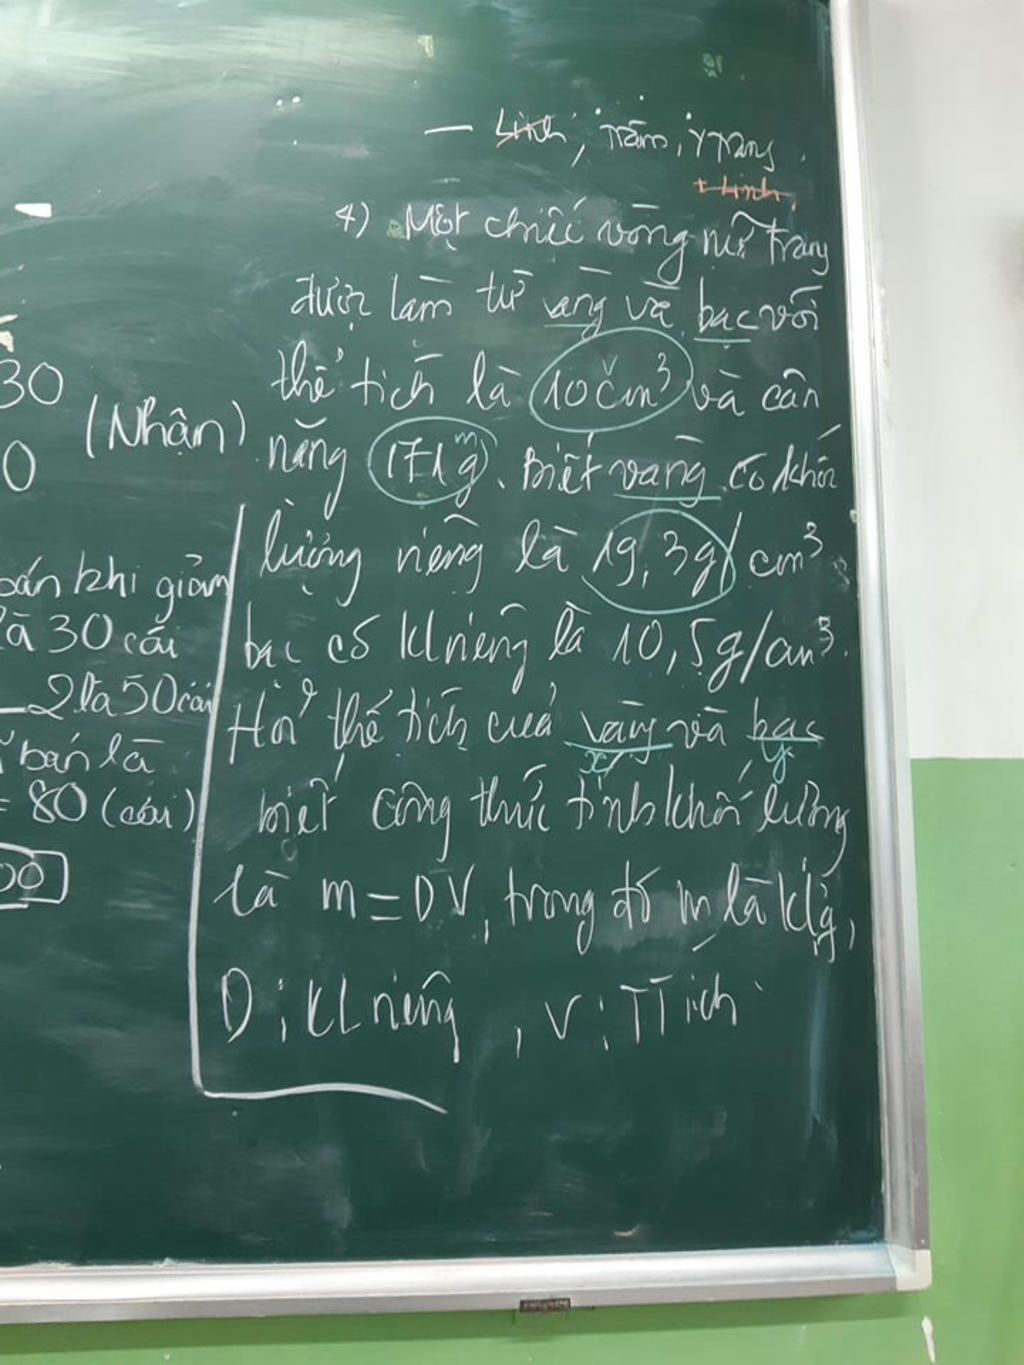 — Linh, Trâm, Ytrang.
+ Linh.
4) Một chiếc vòng nữ trang
được làm từ vàng và bạc với
thể tích là 10cm³ và cân
nặng 171g. Biết vàng có khối
m
lượng riêng là 19,3g/cm³
bạc có kl riêng là 10,5g/cm³.
Hỏi thể tích của vàng và bạc
x y
biết công thức tính khối lượng
là m = DV, trong đó m là kl g,
D: KL riêng, V: TTích
30
(Nhận)
0
bán khi giảm
là 30 cái
2 là 50 cái
bán là
= 80 (cái)
00